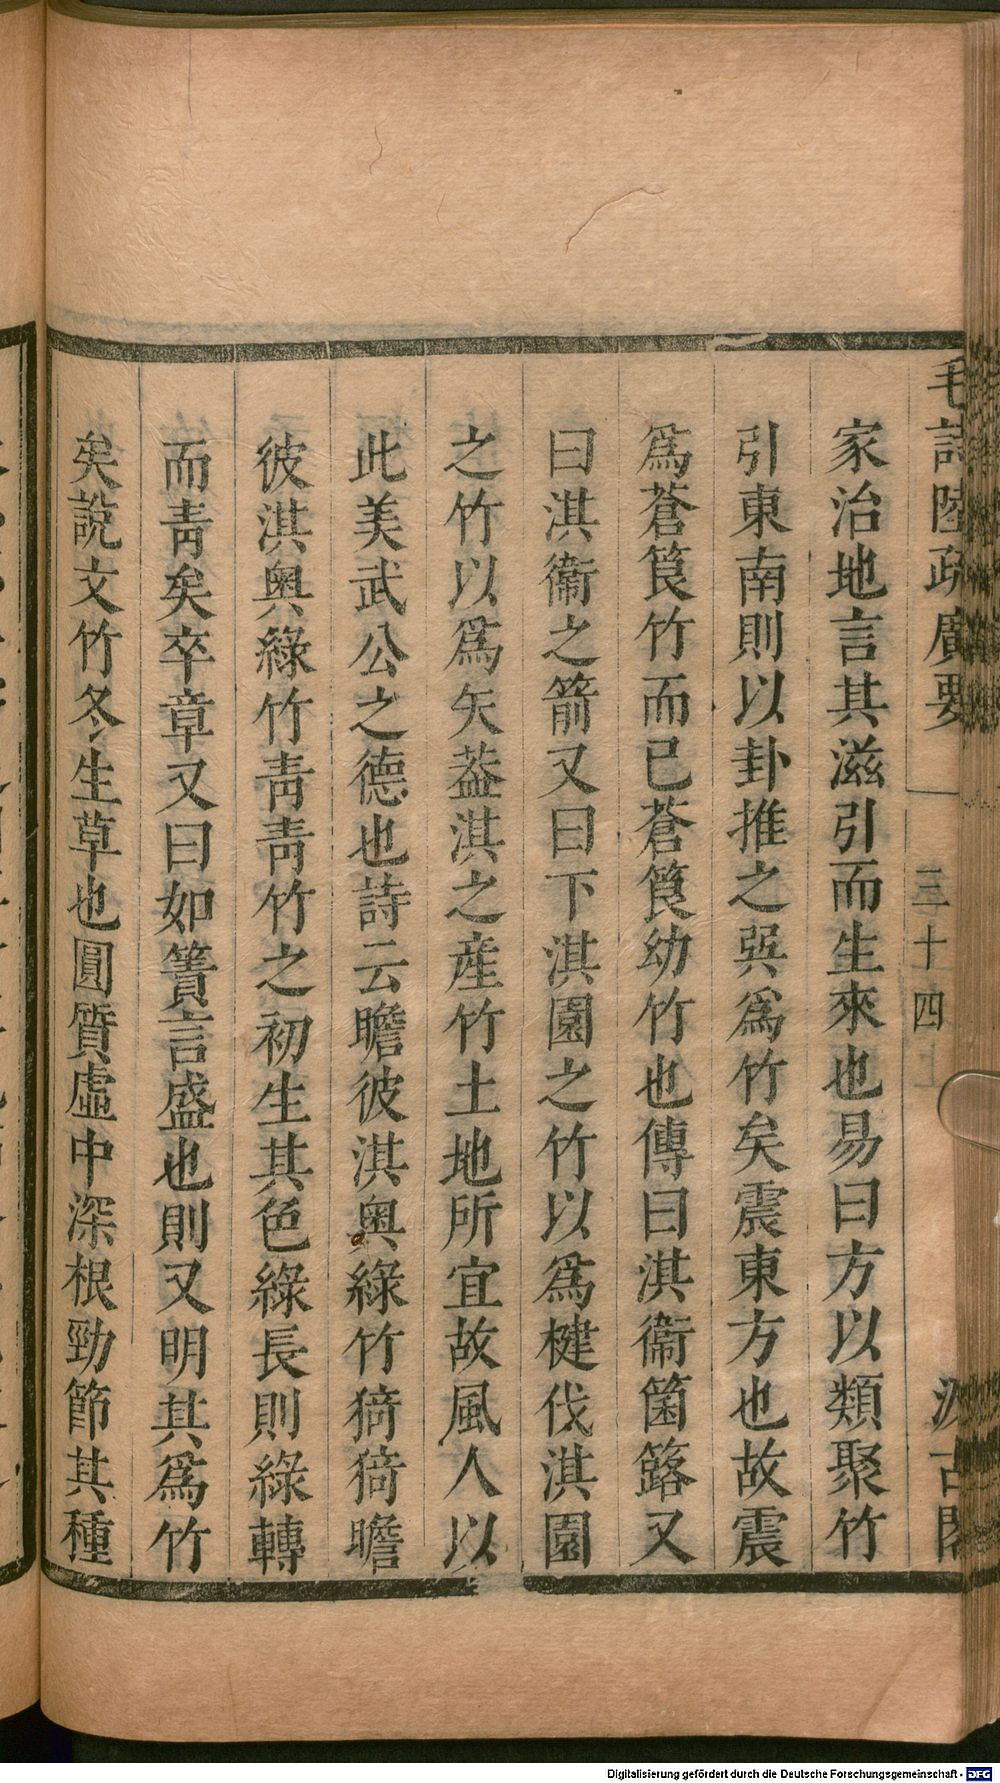 毛詩陸疏廣要
三十四
汲古閣
家治地言其滋引而生來也易曰方以類聚竹
引東南則以卦推之巽爲竹矣震東方也故震
爲蒼筤竹而已蒼筤幼竹也傳曰淇衞箘簬又
曰淇衞之箭又曰下淇園之竹以爲楗伐淇園
之竹以爲矢葢淇之産竹土地所宜故風人以
此美武公之德也詩云瞻彼淇奥綠竹猗猗瞻
彼淇奥綠竹靑靑竹之初生其色綠長則綠轉
而靑矣卒章又曰如簀言盛也則又明其爲竹
矣說文竹冬生草也圓質虛中深根勁節其種
Digitalisierung gefördert durch die Deutsche Forschungsgemeinschaft - DFG